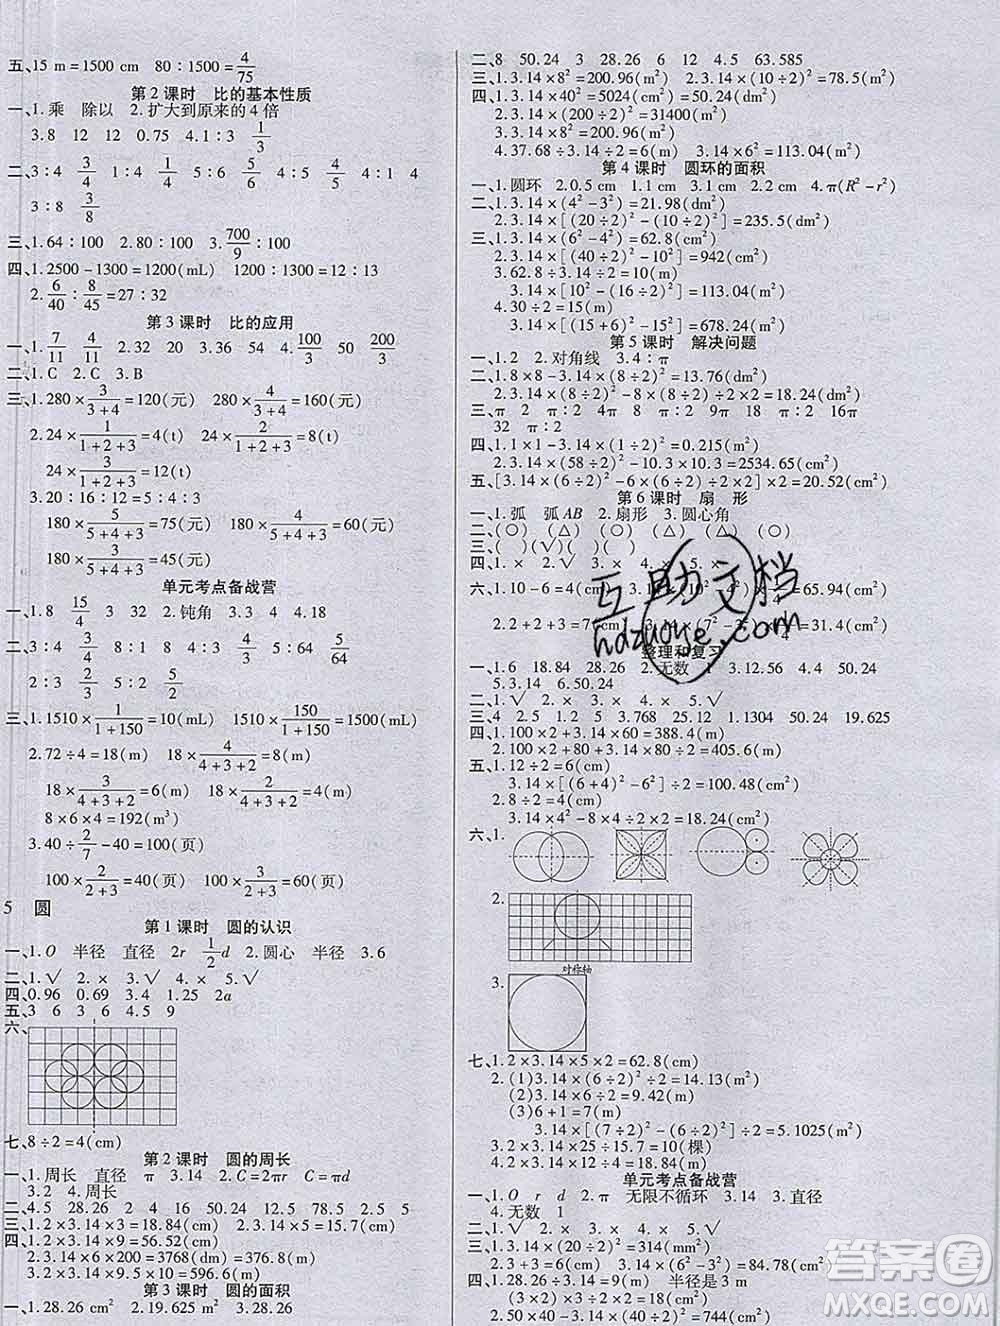 五、15 m=1500 cm 80∶1500=4/75
第2课时 比的基本性质
一、1.乘 除以 2.扩大到原来的4倍
3.8 12 12 0.75 4.1∶3 1/3
二、3∶4 3/4 1∶4 1/4 5∶2 5/2 4∶1 4
3∶8 3/8
三、1.64∶100 2.80∶100 3.700/9∶100
四、1.2500-1300=1200(mL) 1200∶1300=12∶13
2.6/40∶8/45=27∶32
第3课时 比的应用
一、1.7/11 4/11 2.32 20 3.36 54 4.100/3 50 200/3
二、1.C 2.C 3.B
三、1.280×3/(3+4)=120(元) 280×4/(3+4)=160(元)
2.24×1/(1+2+3)=4(t) 24×2/(1+2+3)=8(t)
24×3/(1+2+3)=12(t)
3.20∶16∶12=5∶4∶3
180×5/(5+4+3)=75(元) 180×4/(5+4+3)=60(元)
180×3/(5+4+3)=45(元)
单元考点备战营
一、1.8 15/4 3 32 2.钝角 3.3 4 4.18
二、3∶4 3/4 5∶1 5 5∶8 5/8 5∶9 5/9
2∶3 2/3 5∶2 5/2
三、1.1510×1/(1+150)=10(mL) 1510×150/(1+150)=1500(mL)
2.72÷4=18(m) 18×4/(4+3+2)=8(m)
18×3/(4+3+2)=6(m) 18×2/(4+3+2)=4(m)
8×6×4=192(m³)
3.40÷2/7-40=100(页)
100×2/(2+3)=40(页) 100×3/(2+3)=60(页)
5 圆
第1课时 圆的认识
一、1.O 半径 直径 2r 1/2d 2.圆心 半径 3.6
二、1.√ 2.× 3.× 4.√ 5.√
四、0.96 0.69 3.4 1.25 2a
五、3 6 3 6 4.5 9
六、
七、8÷2=4(cm)
第2课时 圆的周长
一、1.周长 直径 π 3.14 2.C=2πr C=πd
3.2 4.周长
二、4.5 28.26 2 4 16 50.24 12.5 78.5 2.5 5
三、1.2×3.14×3=18.84(cm) 2.3.14×5=15.7(cm)
四、1.2×3.14×9=56.52(cm)
2.3.14×6×200=3768(dm)=376.8(m)
3.2×3.14×95=596.6(m)
第3课时 圆的面积
一、1.28.26 cm² 2.19.625 m² 3.28.26
二、8 50.24 3 28.26 6 12 4.5 63.585
三、1.3.14×8²=200.96(m²) 2.3.14×(10÷2)²=78.5(m²)
四、1.3.14×40²=5024(cm²)=50.24(dm²)
2.3.14×(200÷2)²=31400(m²)
3.3.14×8²=200.96(m²)
4.37.68÷3.14÷2=6(m) 3.14×6²=113.04(m²)
第4课时 圆环的面积
一、1.圆环 2.0.5 cm 1.1 cm 3.1 2.2 4.π(R²-r²)
二、1.3.14×(4²-3²)=21.98(dm²)
2.3.14×[(20÷2)²-(10÷2)²]=235.5(dm²)
三、1.3.14×(6²-4²)=62.8(cm²)
2.3.14×[(40÷2)²-10²]=942(cm²)
3.62.8÷3.14÷2=10(m)
3.14×[10²-(16÷2)²]=113.04(m²)
4.30÷2=15(m)
3.14×[(15+6)²-15²]=678.24(m²)
第5课时 解决问题
一、1.2 2.对角线 3.4∶π
二、1.8×8-3.14×(8÷2)²=13.76(dm²)
2.3.14×(8÷2)²-8×(8÷2)÷2×2=18.24(dm²)
三、π 2 π∶2 4π 8 π∶2 16π
32 π∶2
四、1.1×1-3.14×(1÷2)²=0.215(m²)
2.3.14×(58÷2)²-10.6×10.0=2534.65(cm²)
五、[3.14×(6÷2)²-6×(6÷2)÷2×2]×2=20.52(cm²)
第6课时 扇 形
一、1.弧 弧AB 2.扇形 3.圆心角
二、(○) (△) (△) (○) (△) (○)
三、( )(√)( )( )
四、1.× 2.× 3.√ 4.×
六、1.10-6=4(cm)
2.2+2+3=7(cm) 3.14×(7²-3²)×1/4=31.4(cm²)
整理和复习
一、1.6 18.84 28.26 2.无数 1 3.12.56 4.4 50.24
5.3.14 6.50.24
二、1.√ 2.× 3.× 4.× 5.√
三、4 2.5 1.2 5 3.768 25.12 1.1304 50.24 19.625
四、1.100×2+3.14×60=388.4(m)
2.100×2+80+3.14×80÷2=405.6(m)
五、1.12÷2=6(cm)
3.14×[(6+4)²-6²]÷2=100.48(cm²)
2.8÷2=4(cm)
3.14×4²-8×4÷2×2=18.24(cm²)
六、1.
2.
对称轴
3.
七、1.2×3.14×5×2=62.8(cm)
2.(1)3.14×(6÷2)²÷2=14.13(m²)
(2)3.14×6÷2=9.42(m)
(3)6+1=7(m)
3.14×[(7÷2)²-(6÷2)²]÷2=5.1025(m²)
3.2×3.14×25÷1.57=100(棵)
4.2×3.14×12÷4=18.84(m)
单元考点备战营
一、1.O r d 2.π 无限不循环 3.14 3.直径
4.无数 1
二、1.√ 2.× 3.√ 4.× 5.√
三、1.3.14×(20÷2)²=314(mm²)
2.3+3=6(cm) 3.14×(6²-3²)=84.78(cm²)
四、1.28.26÷3.14=9(m²) 半径是3 m
(3×2)×(3×2)=36(m²)
2.50×40-3.14×(40÷2)²=744(cm²)
互助文档
hdzuoye.com
答案圈
MXQE.COM